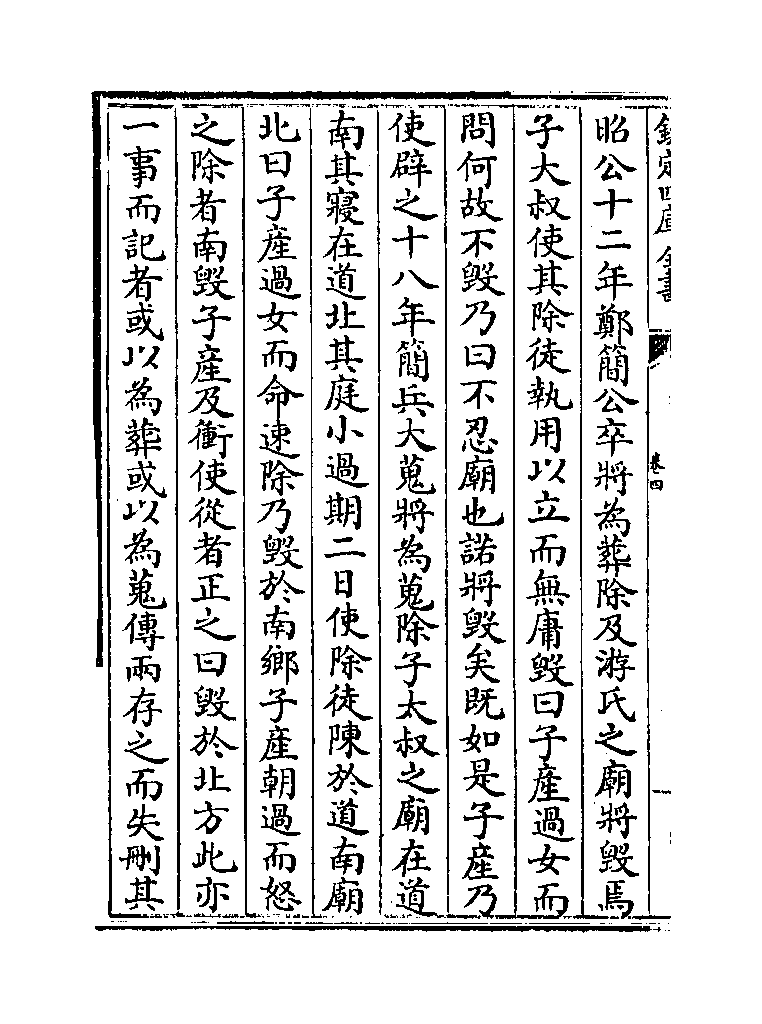 欽定四庫全書
卷四
昭公十二年鄭簡公卒將為葬除及游氏之廟將毀焉
子大叔使其除徒執用以立而無庸毀曰子產過女而
問何故不毀乃曰不忍廟也諾將毀矣既如是子產乃
使辟之十八年簡兵大蒐將為蒐除子太叔之廟在道
南其寢在道北其庭小過期二日使除徒陳於道南廟
北曰子產過女而命速除乃毀於南鄉子產朝過而怒
之除者南毀子產及衝使從者正之曰毀於北方此亦
一事而記者或以為葬或以為蒐傳兩存之而失刪其